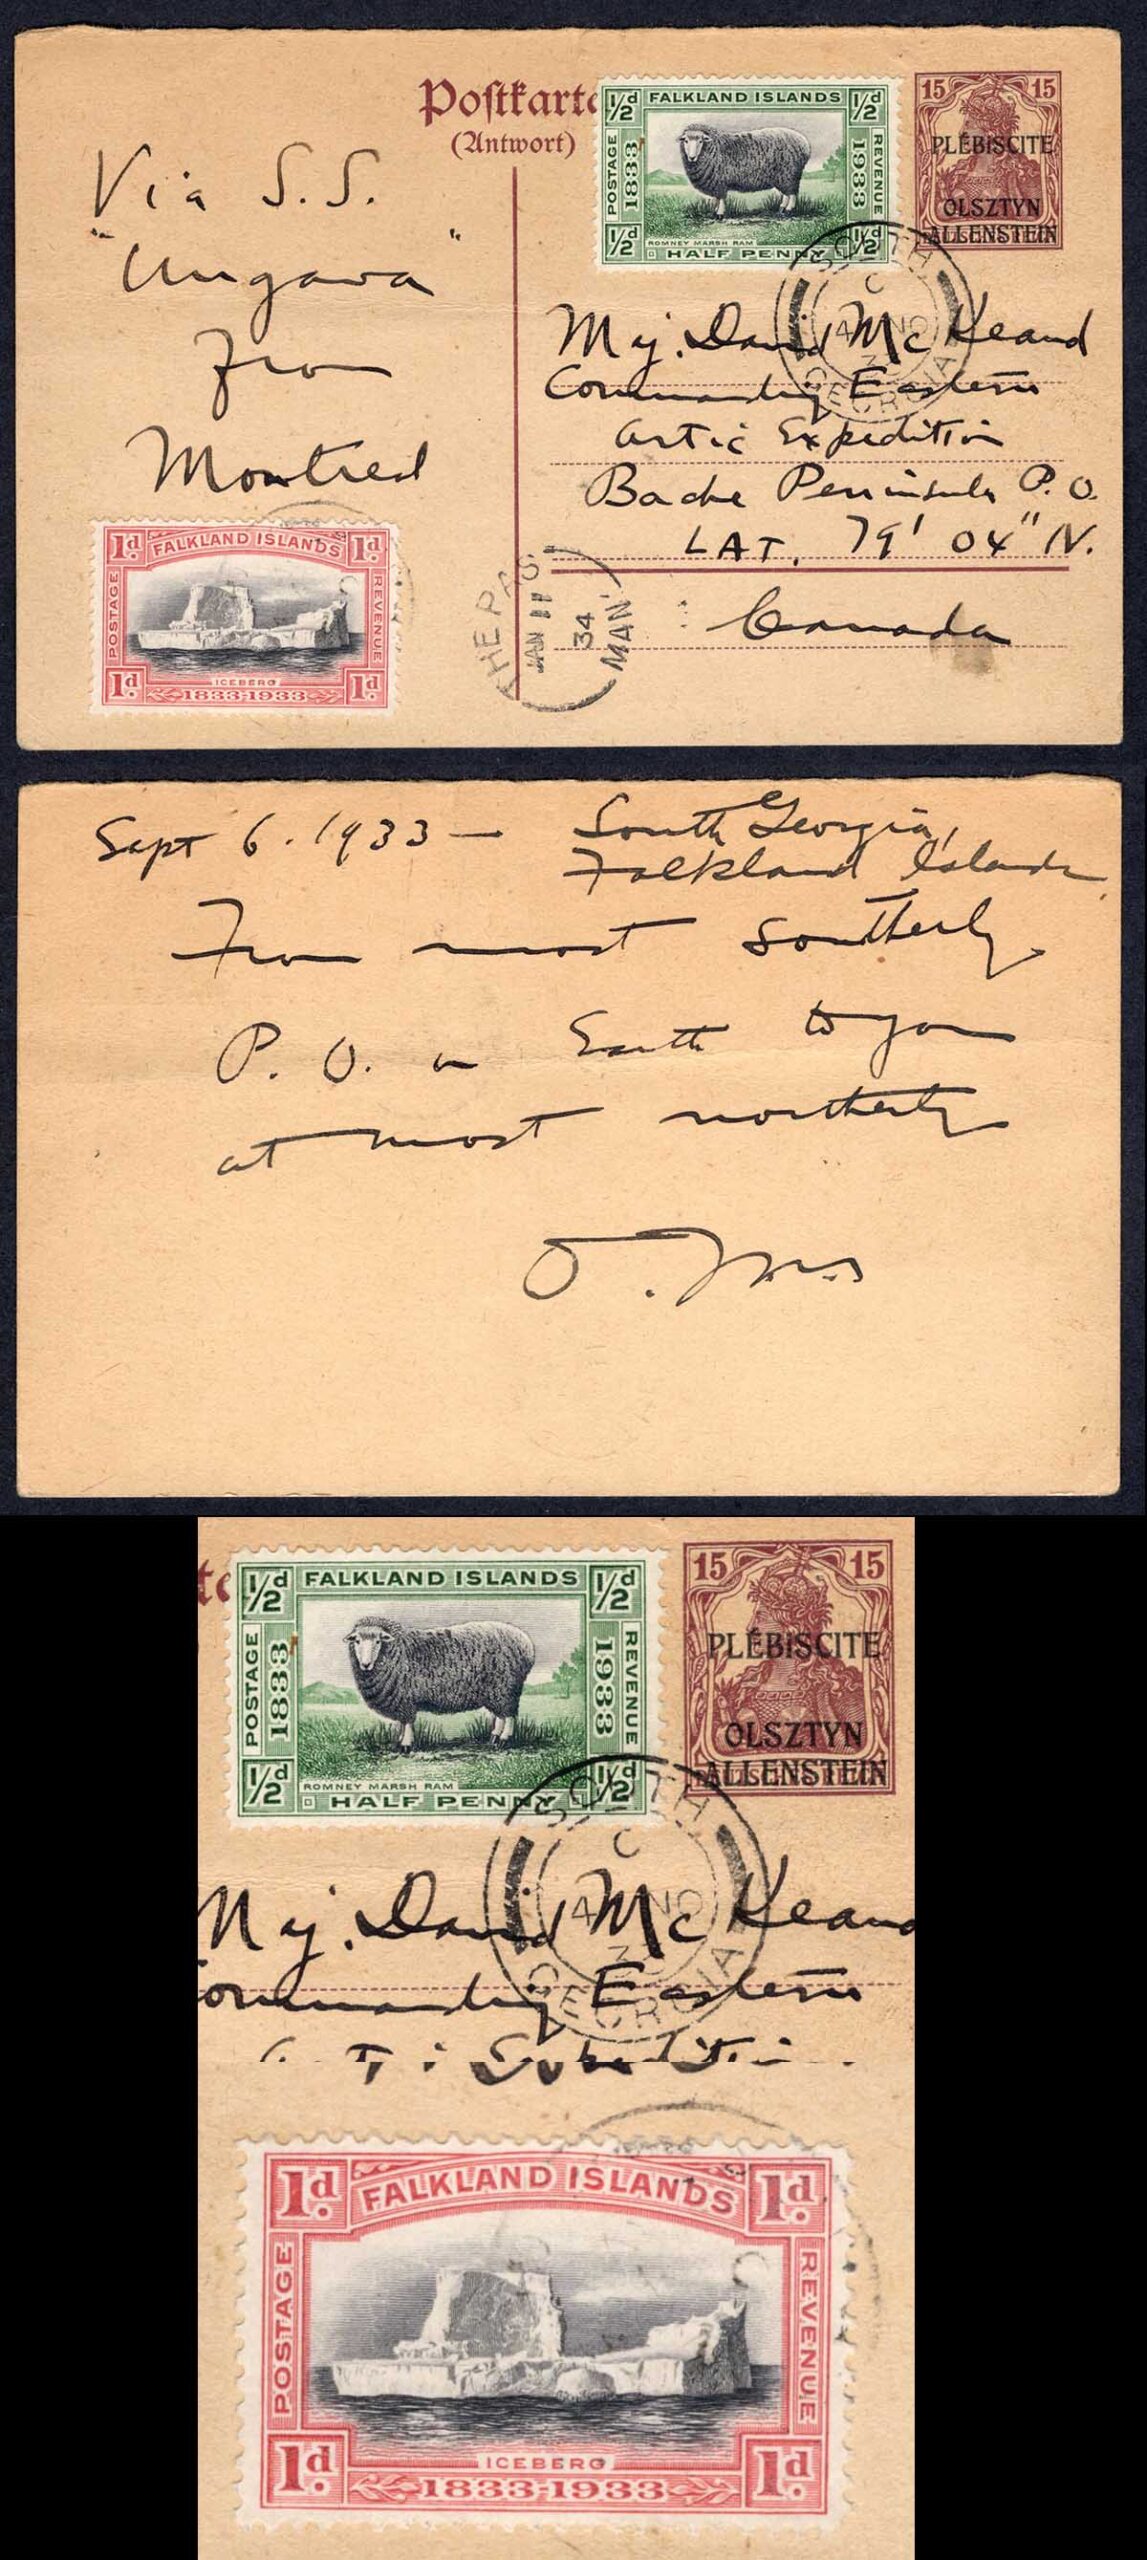 Postkarte
(Antwort)
Via S.S.
"Ungava"
From
Montreal
½d FALKLAND ISLANDS ½d
POSTAGE 1833
1933 REVENUE
ROMNEY MARSH RAM
½d HALF PENNY ½d
15 15
PLÉBISCITE
OLSZTYN
ALLENSTEIN
SOUTH
C
4 NO
33
GEORGIA
Maj. David McKeand
Commanding Eastern
Artic Expedition
Bache Peninsula P.O.
LAT. 79' 04" N.
Canada
1d. FALKLAND ISLANDS 1d.
POSTAGE
REVENUE
ICEBERG
1d. 1833-1933 1d.
THE PAS
JAN 11
34
MAN.
Sept 6. 1933 — South Georgia,
Falkland Islands
From most southerly
P. O. on Earth to you
at most northerly
te
½d FALKLAND ISLANDS ½d
POSTAGE 1833
1933 REVENUE
ROMNEY MARSH RAM
½d HALF PENNY ½d
15 15
PLÉBISCITE
OLSZTYN
ALLENSTEIN
SOUTH
C
4 NO
33
GEORGIA
Maj. David McKeand
Commanding Eastern
1d. FALKLAND ISLANDS 1d.
POSTAGE
REVENUE
ICEBERG
1d. 1833-1933 1d.